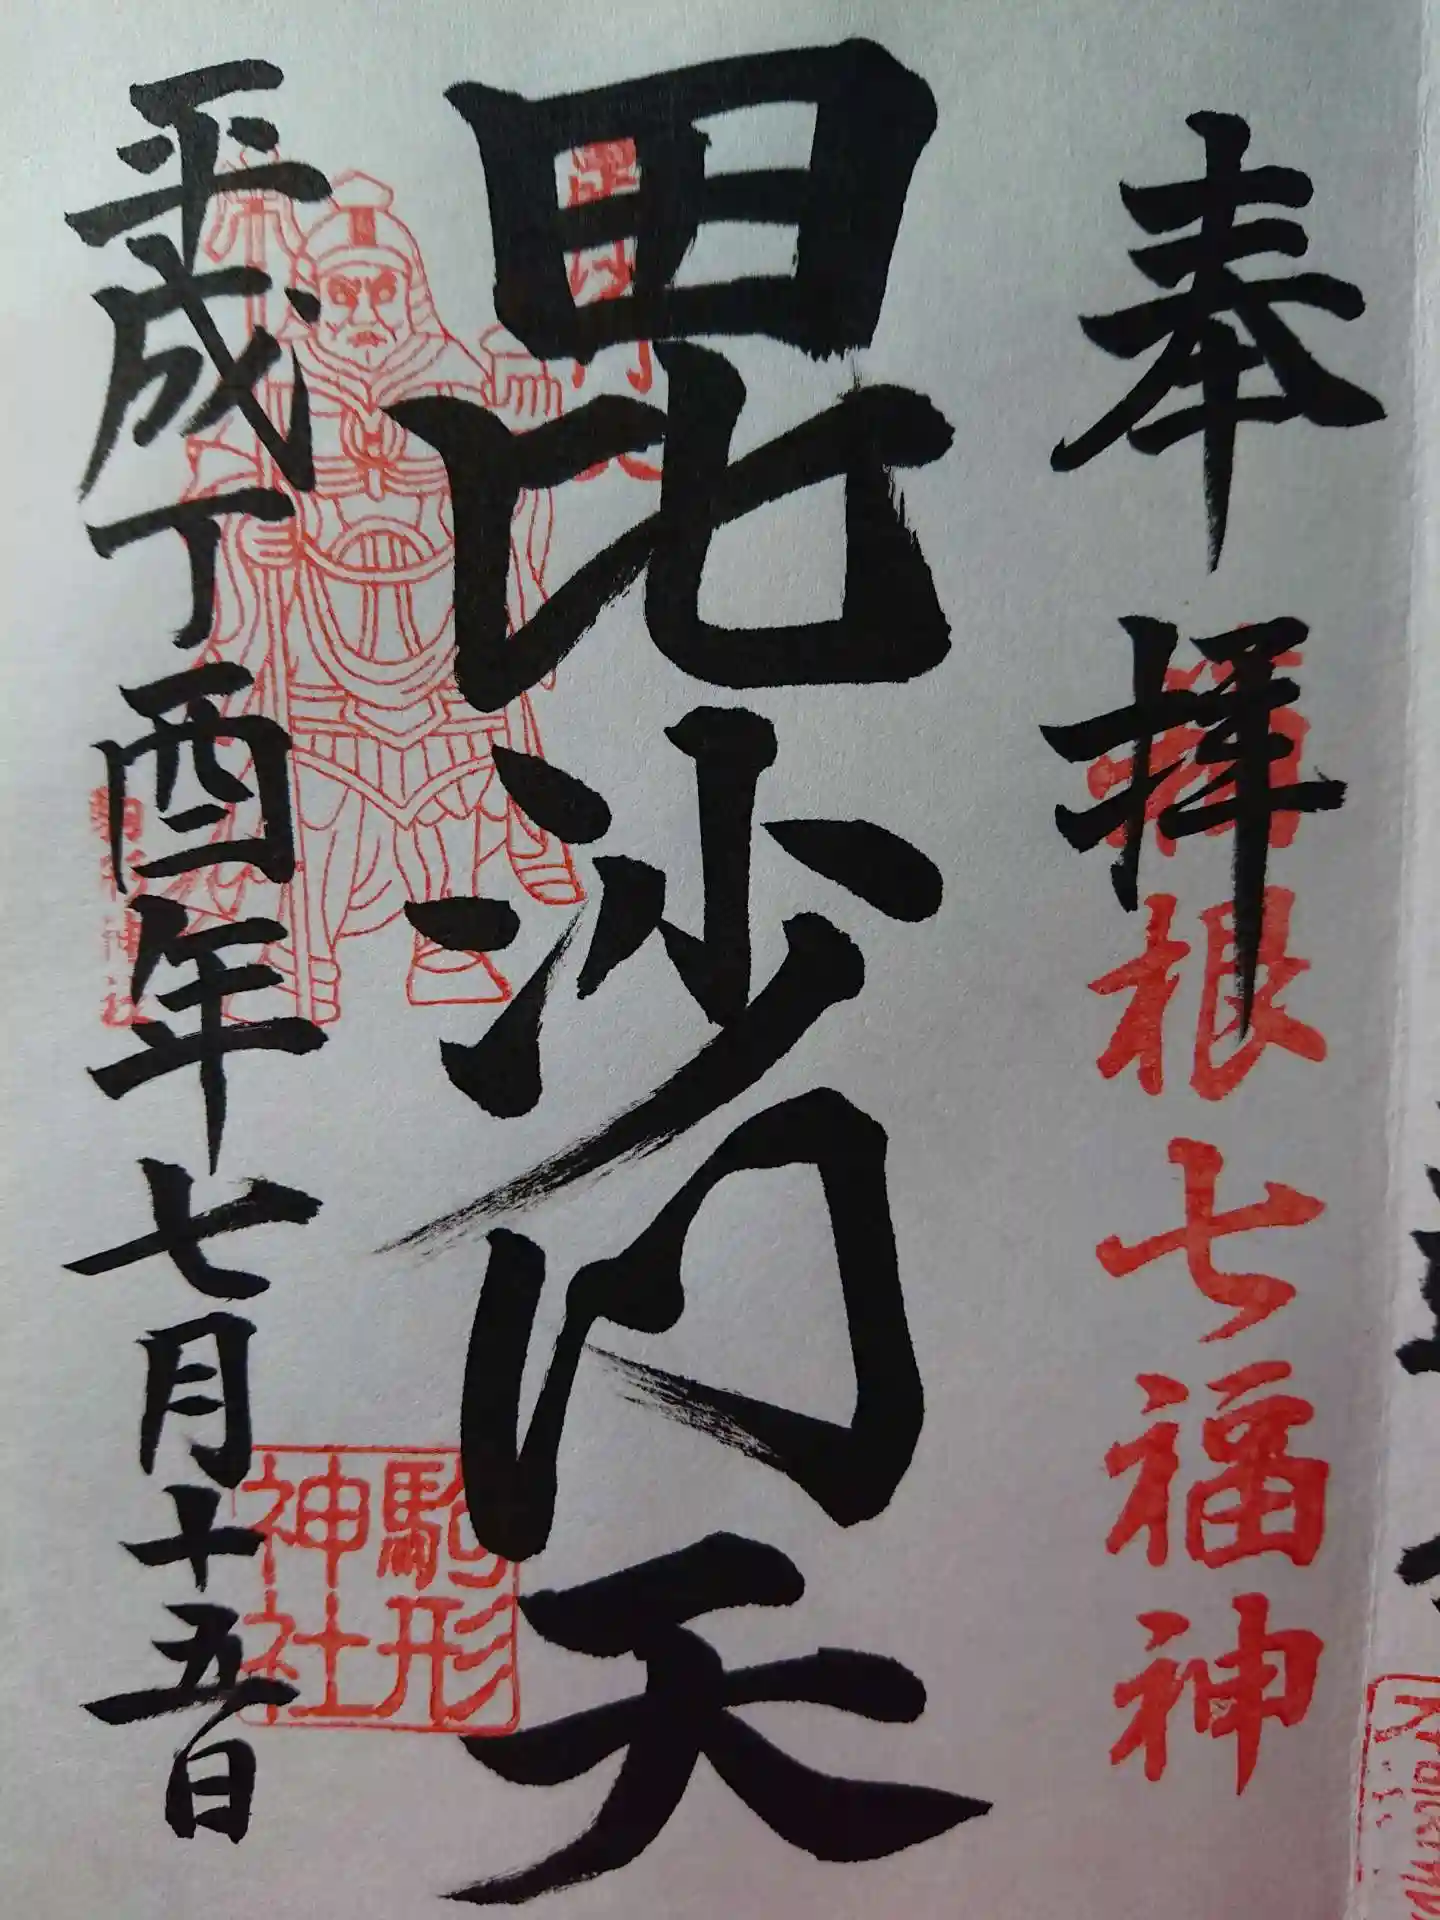 奉拝
箱根七福神
毘沙門天
駒形
神社
平成丁酉年七月十五日
駒形神社